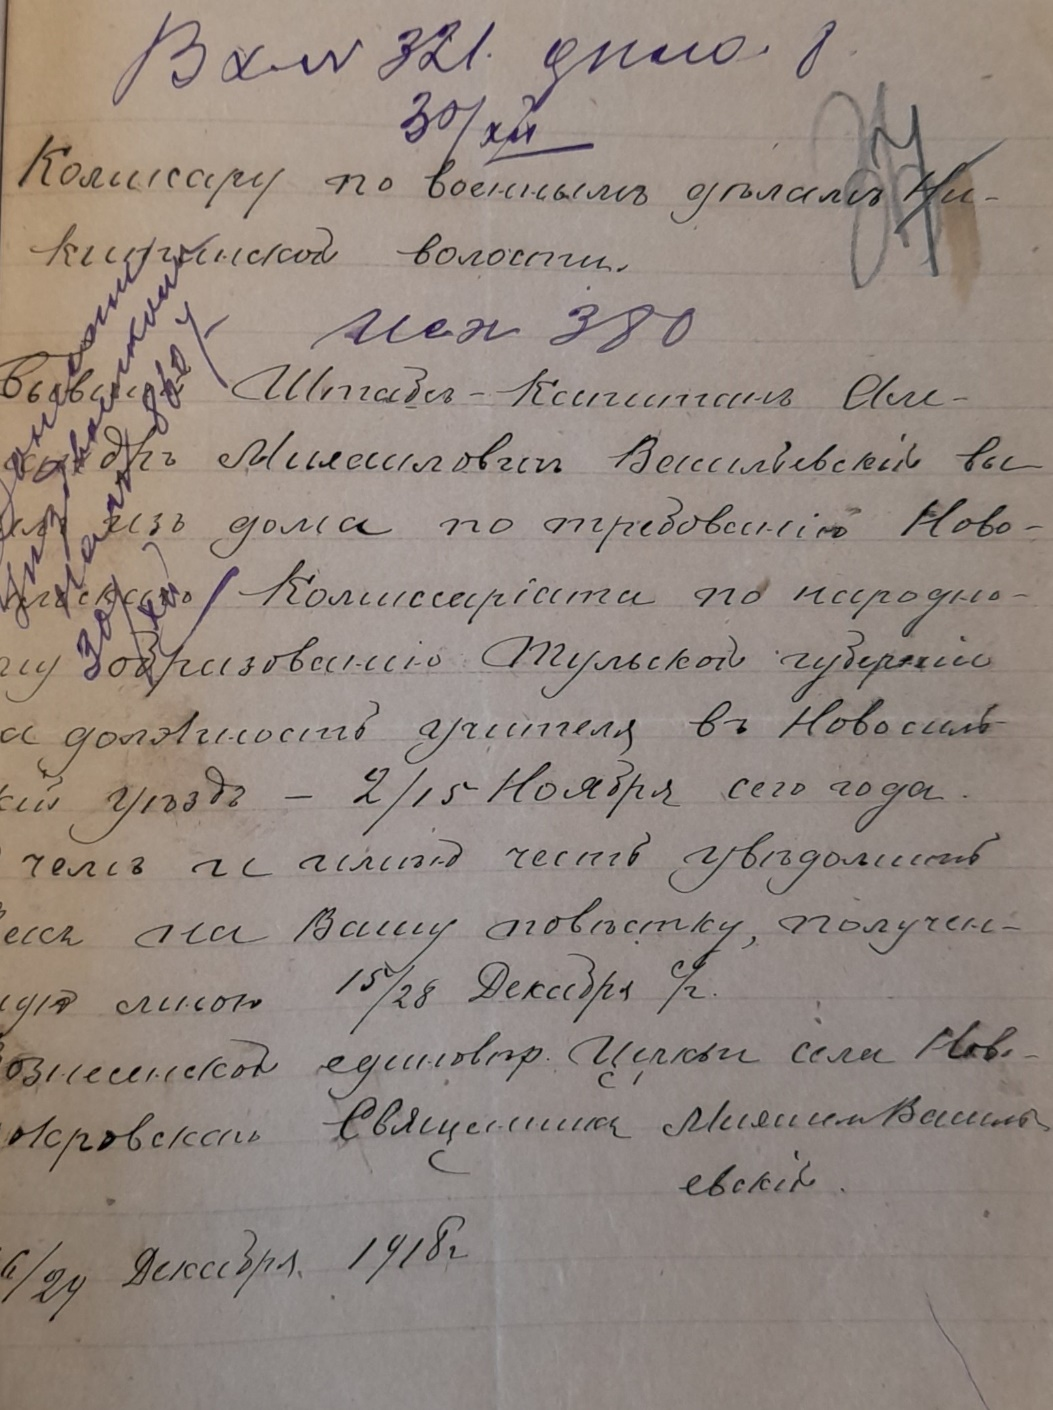 Вх. № 321. дело 8.
30/XII
Комиссару по военнымъ дѣламъ Ни-
китинской волости.
исх 380
Бывшій Штабсъ-Капитанъ Алек-
андръ Михаиловичъ Васильевскій вы
изъ дома по требованію Ново-
Комиссаріата по народно-
му образованію Тульской губерніи
а должность учителя въ Новосиль
кій уѣздъ – 2/15 Ноября сего года.
чемъ и имѣю честь увѣдомить
Васъ на Вашу повѣстку, получен-
ную мною 15/28 Декабря с/г.
Вознесенской единовѣр. Церкви села Ново-
покровскаго Священникъ Михаилъ Василь
евскій.
16/29 Декабря 1918 г
уѣзд
30/XII